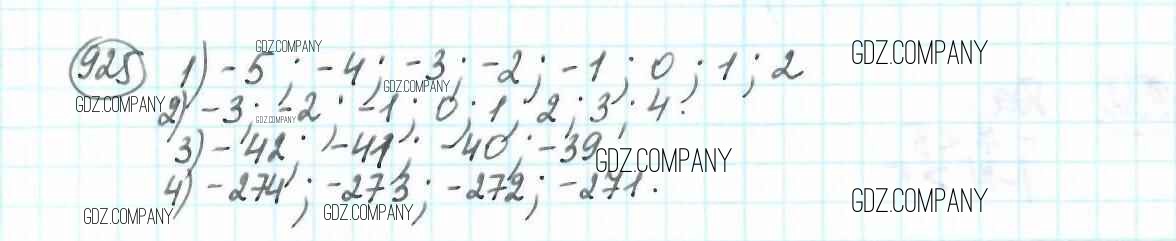 GDZ.COMPANY
GDZ.COMPANY
925 1) -5; -4; -3; -2; -1; 0; 1; 2
GDZ.COMPANY
GDZ.COMPANY
2) -3; -2; -1; 0; 1; 2; 3; 4.
GDZ.COMPANY
3) -42; -41; -40; -39
GDZ.COMPANY
4) -274; -273; -272; -271.
GDZ.COMPANY
GDZ.COMPANY
GDZ.COMPANY